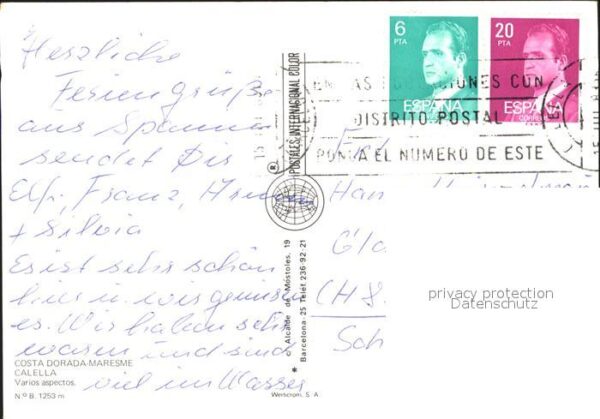 Herzliche
Feriengrüße
aus Spanien
sendet Dir
Franz,
+ Silvia
Es ist sehr schön
hier u. wir geniessen
es. Wir haben sehr
warm und sind
viel im Wasser
COSTA DORADA-MARESME
CALELLA
Varios aspectos.
N.º B. 1253 m
® POSTALES INTERNACIONAL COLOR
© Alcalde de Móstoles, 19
* Barcelona-25 Telef. 236-92-21
Werscion, S. A.
6
PTA
ESPAÑA
20
PTA
ESPAÑA
CORREOS
EN LAS POBLACIONES CON
DISTRITO POSTAL
PONGA EL NUMERO DE ESTE
(CH 8
Sch
privacy protection
Datenschutz